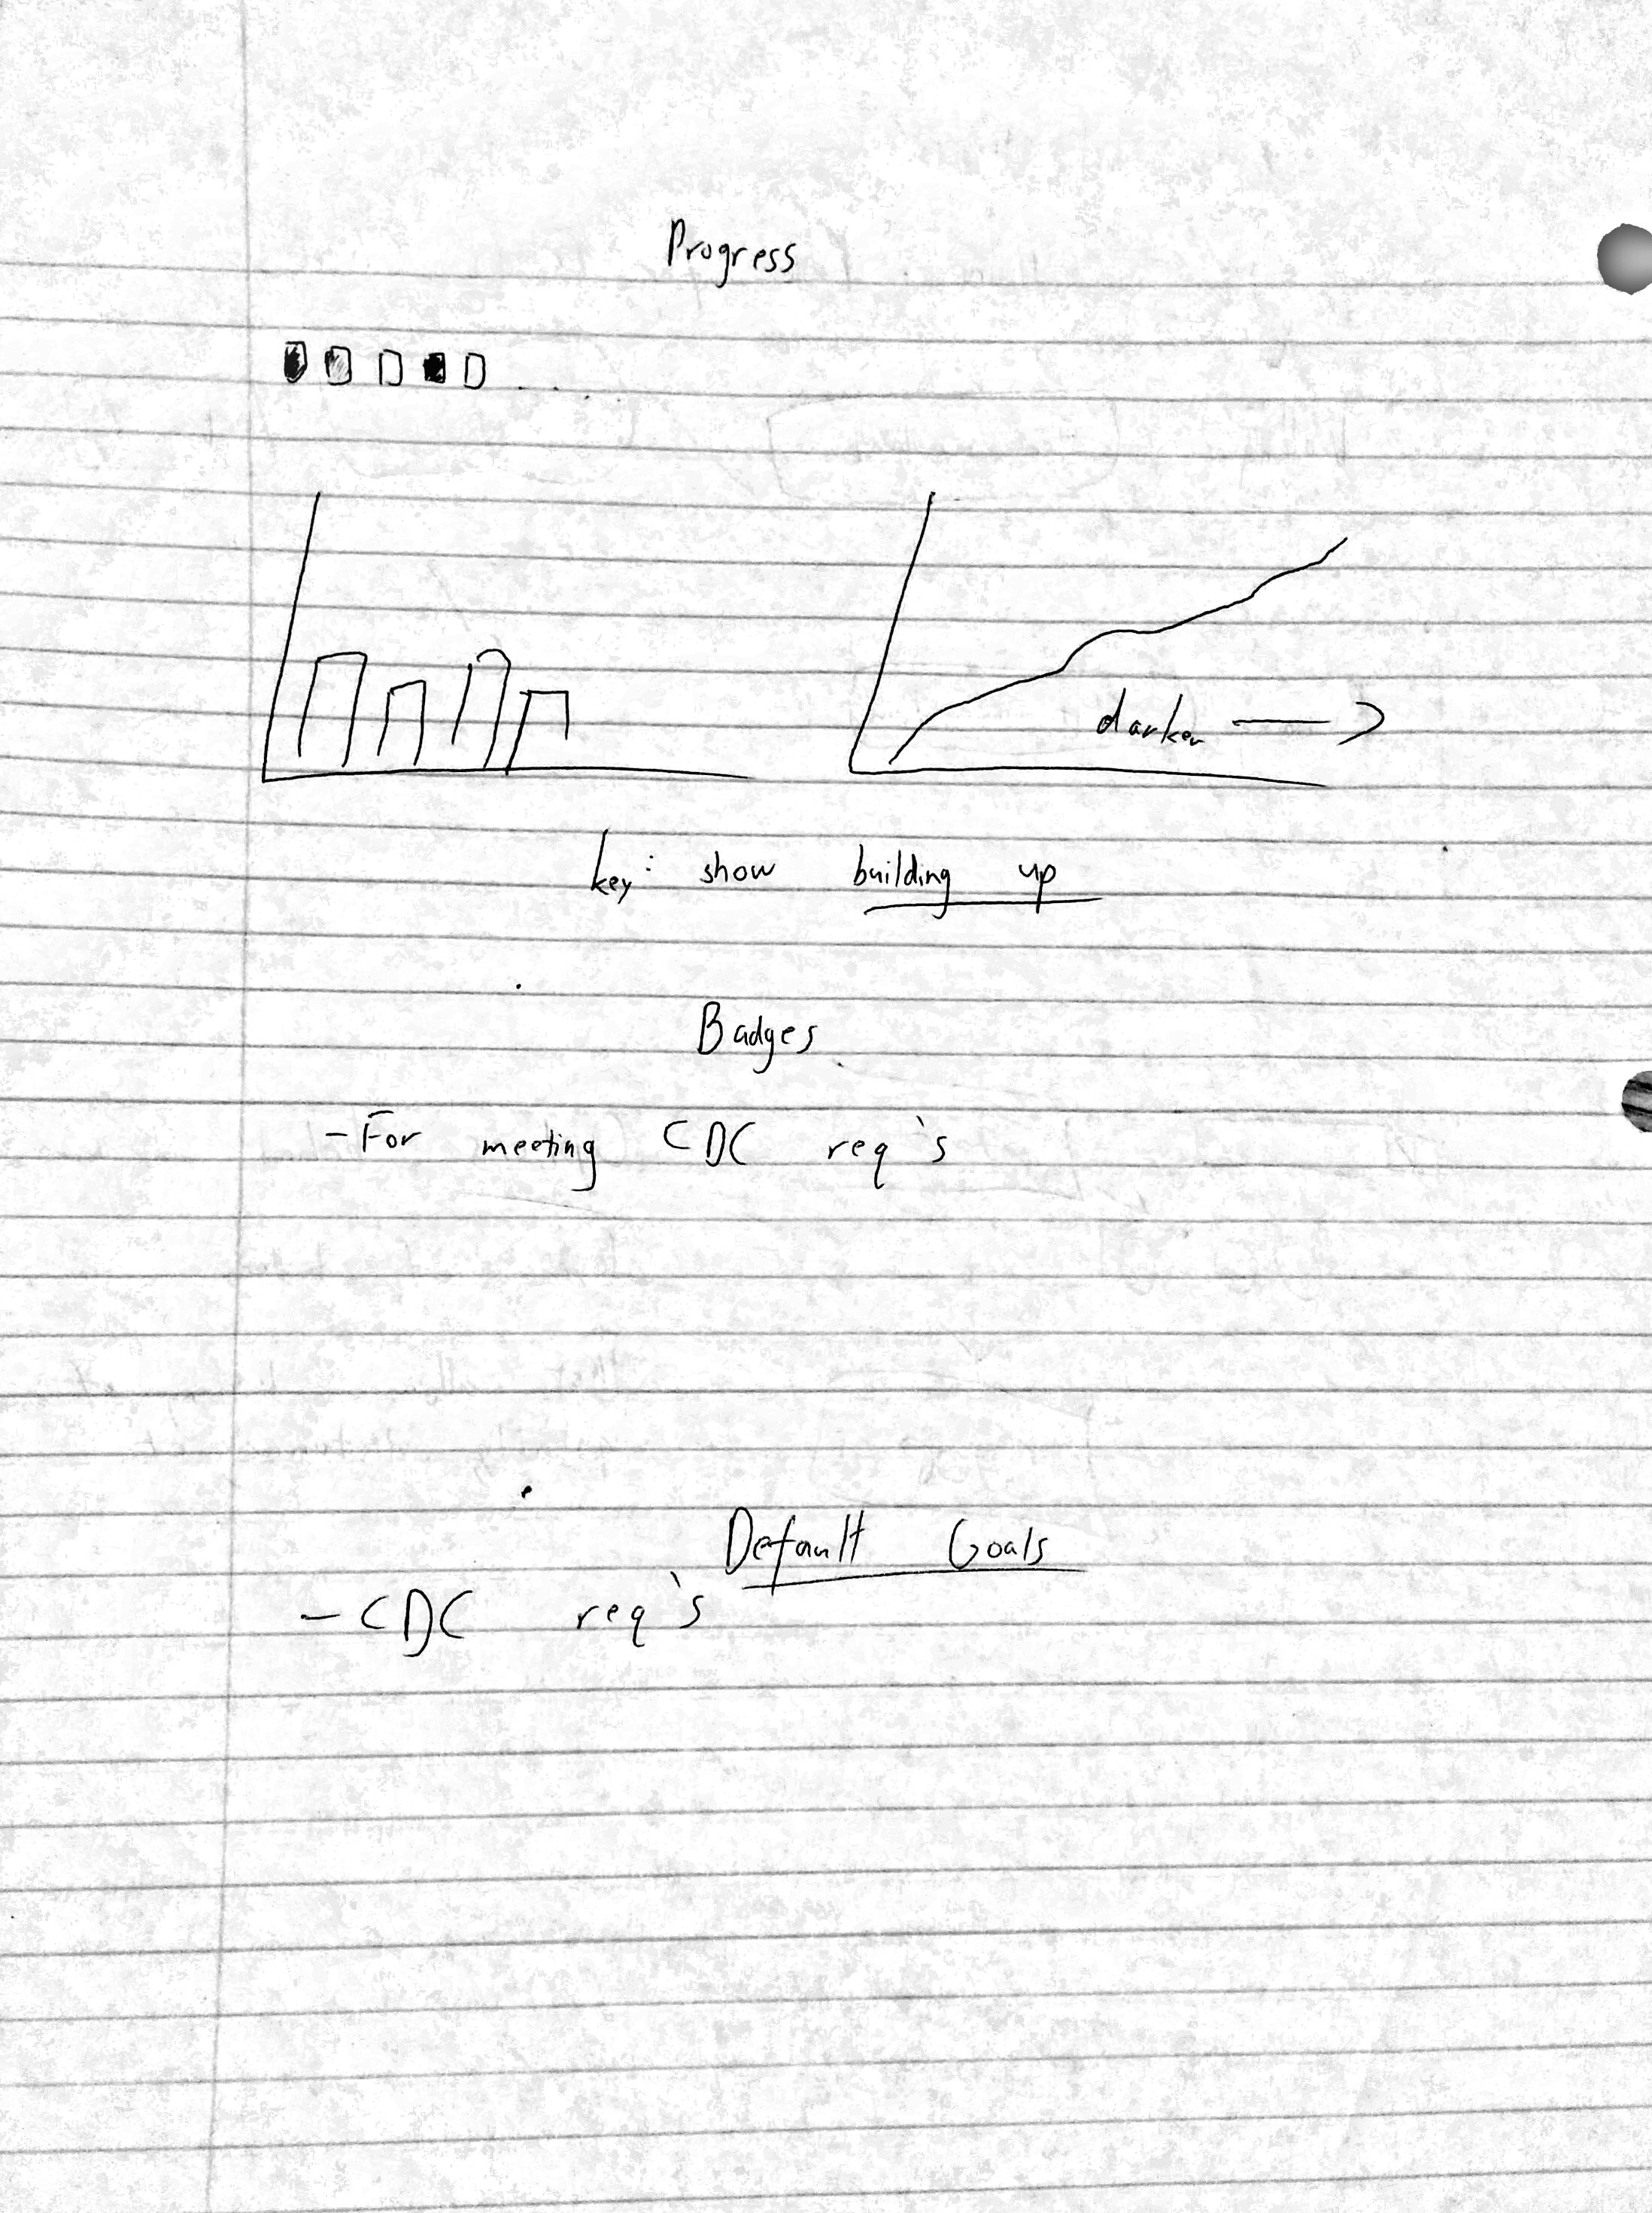 Progress
darker
key: show building up
Badges
- For meeting CDC req's
Default Goals
- CDC req's